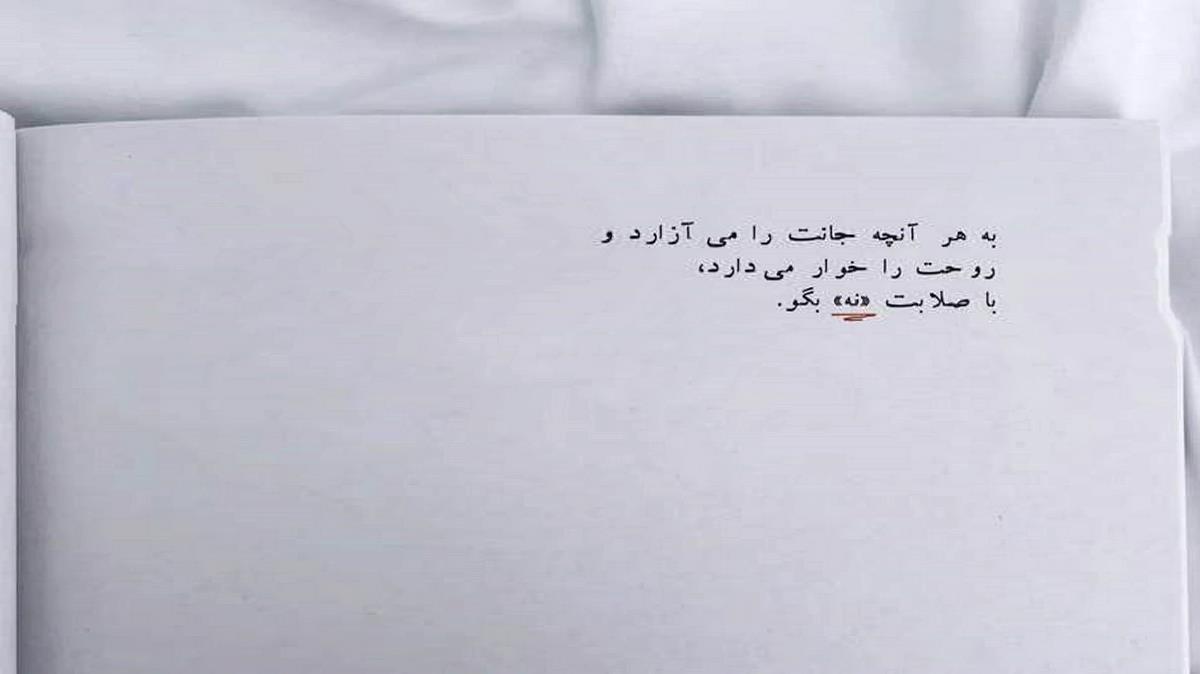 به هر آنچه جانت را می آزارد و
روحت را خوار می‌دارد،
با صلابت «نه» بگو.